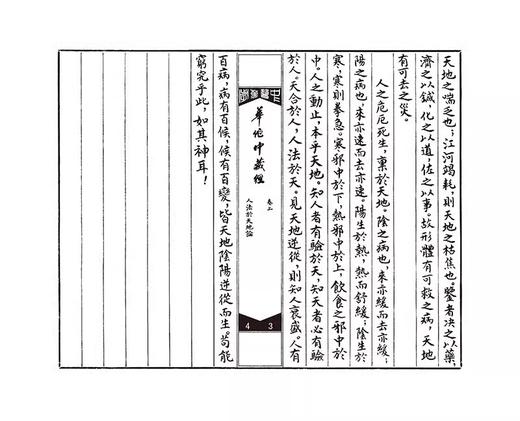 天地之喘乏也;江河竭耗,則天地之枯焦也。鑒者決之以藥,
濟之以鍼,化之以道,佐之以事。故形體有可救之病,天地
有可去之災。
人之危厄死生,稟於天地。陰之病也,來亦緩而去亦緩;
陽之病也,來亦速而去亦速。陽生於熱,熱而舒緩;陰生於
寒,寒則拳急。寒邪中於下,熱邪中於上,飲食之邪中於
中。人之動止,本乎天地。知人者有驗於天,知天者必有驗
於人。天合於人,人法於天。見天地逆從,則知人衰盛。人有
華佗中藏經
卷上
人法於天地論
4 3
百病,病有百候,候有百變,皆天地陰陽逆從而生。苟能
窮究乎此,如其神耳!